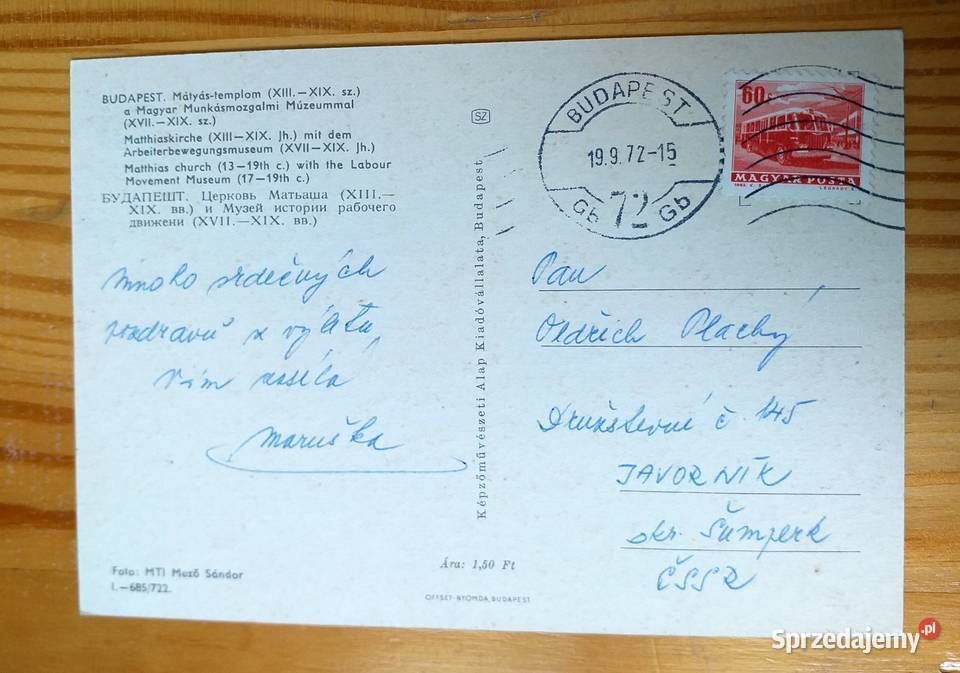 BUDAPEST. Mátyás-templom (XIII.—XIX. sz.)
a Magyar Munkásmozgalmi Múzeummal
(XVII.—XIX. sz.)
Matthiaskirche (XIII—XIX. Jh.) mit dem
Arbeiterbewegungsmuseum (XVII—XIX. Jh.)
Matthias church (13—19th c.) with the Labour
Movement Museum (17—19th c.)
БУДАПЕШТ. Церковь Матьаша (XIII.—
XIX. вв.) и Музей истории рабочего
движени (XVII.—XIX. вв.)
Mnoho srdečných
pozdravů z výletu
Vám zasílá
Maruška
Foto: MTI Mező Sándor
I.—685/722.
SZ
Képzőművészeti Alap Kiadóvállalata, Budapest
Ára: 1,50 Ft
OFFSET-NYOMDA, BUDAPEST
BUDAPEST
19.9.72-15
Gb 72 Gb
60f
MAGYAR POSTA
Pan
Oldřich Plachý
Družstevní č 145
JAVORNÍK
okr. Šumperk
ČSSR
Sprzedajemy.pl